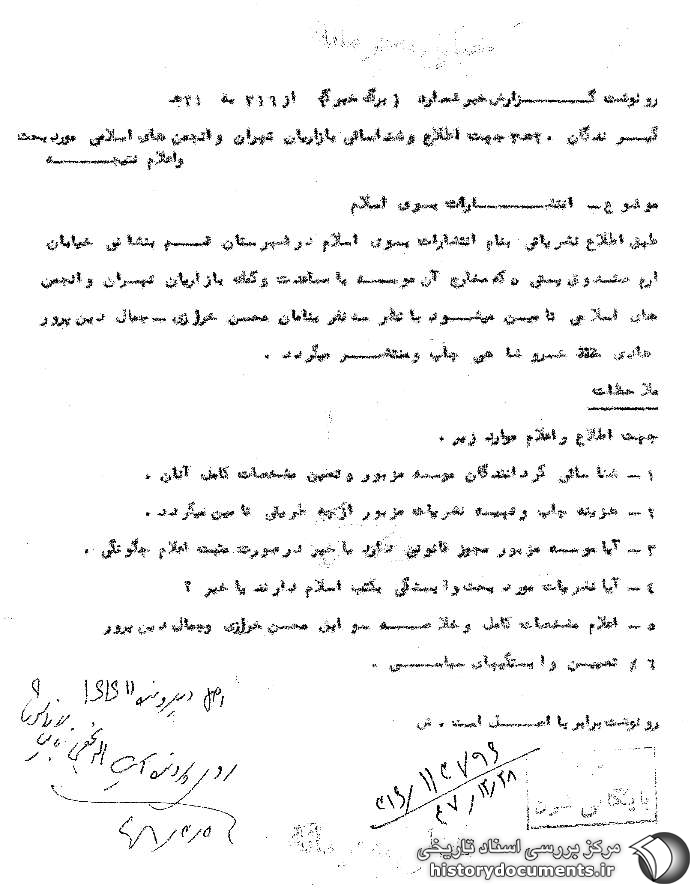 رونوشت گـــزارش خبر شماره ( برگ خبر ) از ۳۱۶ به ۲۱هـ
گیــرندگان ۳۰هـ۲ جهت اطلاع و شناسائی بازاریان تهران و انجمن های اسلامی مورد بحث
و اعلام نتیجــــه
موضوع ــ انتشـــــارات بسوی اسلام
طبق اطلاع نشریاتی بنام انتشارات بسوی اسلام در شهرستان قــم بنشانی خیابان
ارم صندوق پستی ۵ که مخارج آن موسسه با مساعدت و کمک بازاریان تهــران و انجمن
های اسلامی تامین میشـود با نظر سه نفر بنامان محسن خرازی ــ جمال دین پرور
هادی خسرو شاهی چاپ و منتشـــر میگردد .
ملاحظات
جهت اطلاع و اعلام موارد زیر .
۱ ــ شناسائی گردانندگان موسسه مزبور و تعیین مشخصات کامل آنان .
۲ ــ هزینه چاپ و تهیــه نشریات مزبور از چه طریقی تامین میگردد .
۳ ــ آیا موسسه مزبور مجوز قانونی دارد یا خیر در صورت مثبت اعلام چگونگی .
۴ ــ آیا نشریات مورد بحث وابستگی بمکتب اسلام دارند یا خیر ؟
۵ ــ اعلام مشخصات کامل و خلاصـــه سوابق محسن خرازی و جمال دین پرور
۶ / تعییــن وابستگیهای سیاســـی .
رونوشت برابر با اصـــل است . ش
اصل در پرونده
بایگانی شود
۳۱۶/
۴۷/۱۲/۲۸
مرکز بررسی اسناد تاریخی
historydocuments.ir